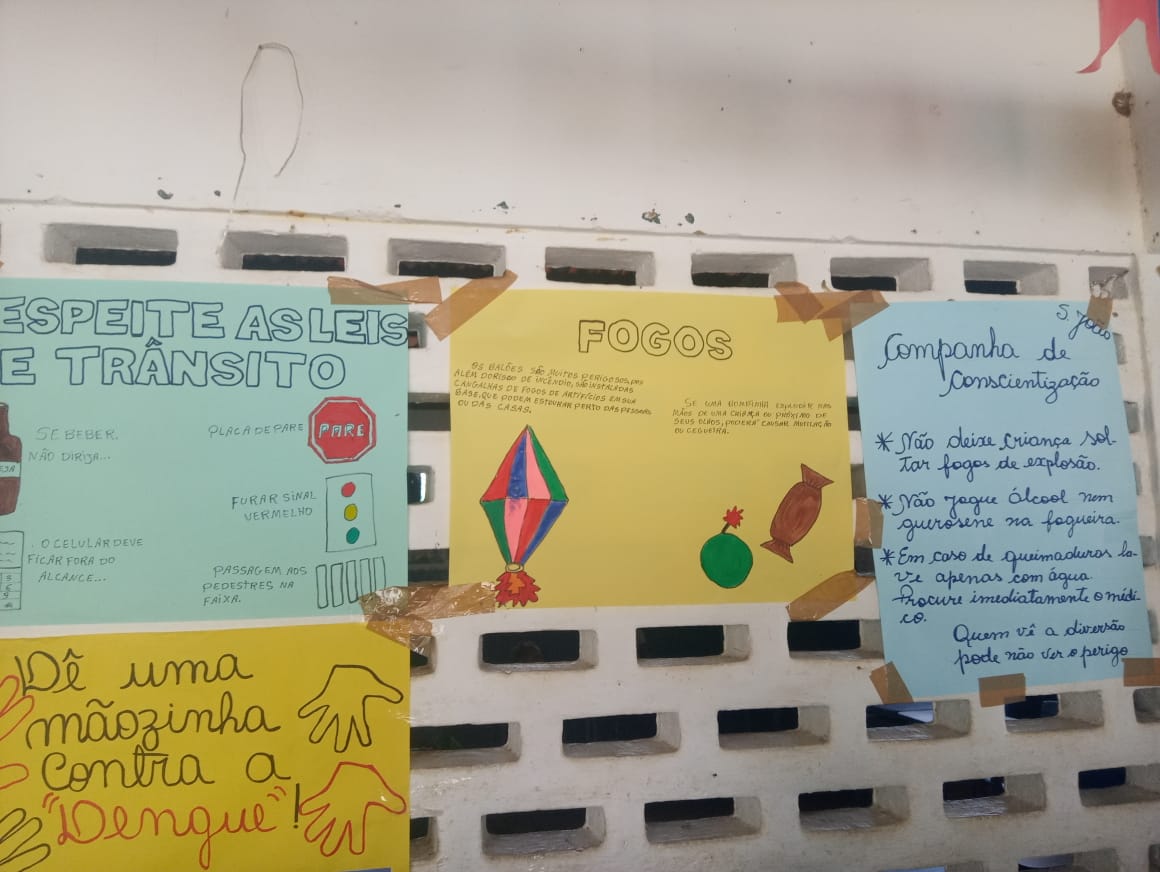 ESPEITE AS LEIS
E TRÂNSITO
SE BEBER.
NÃO DIRIJA...
PLACA DE PARE
PARE
FURAR SINAL
VERMELHO
. O CELULAR DEVE
FICAR FORA DO
ALCANCE...
PASSAGEM AOS
PEDESTRES NA
FAIXA.
Dê uma
mãozinha
contra a
"Dengue"!
FOGOS
OS BALÕES SÃO MUITOS PERIGOSOS, POIS
ALÉM DO RISCO DE INCÊNDIO, SÃO INSTALADAS
CANGALHAS DE FOGOS DE ARTIFÍCIOS EM SUA
BASE, QUE PODEM ESTOURAR PERTO DAS PESSOAS
OU DAS CASAS.
SE UMA BOMBINHA EXPLODIR NAS
MÃOS DE UMA CRIANÇA OU PRÓXIMO DE
SEUS OLHOS, PODERÁ CAUSAR MUTILAÇÃO
OU CEGUEIRA.
S. João
Companha de
Conscientização
* Não deixe criança sol-
tar fogos de explosão.
* Não jogue álcool nem
querosene na fogueira.
* Em caso de queimaduras la-
ve apenas com água.
Procure imediatamente o médi-
co.
Quem vê a diversão
pode não ver o perigo